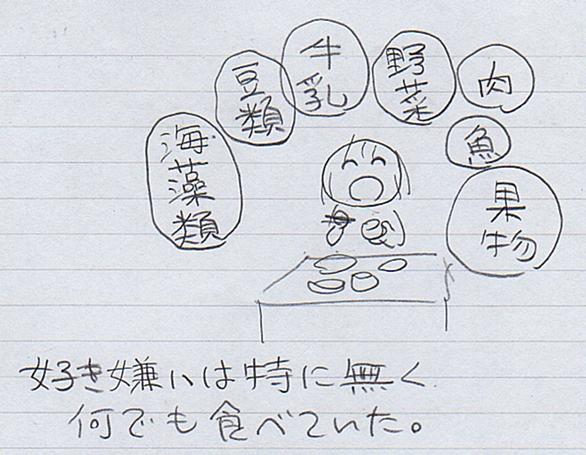 海藻類
豆類
牛乳
野菜
肉
魚
果物
好き嫌いは特に無く
何でも食べていた。